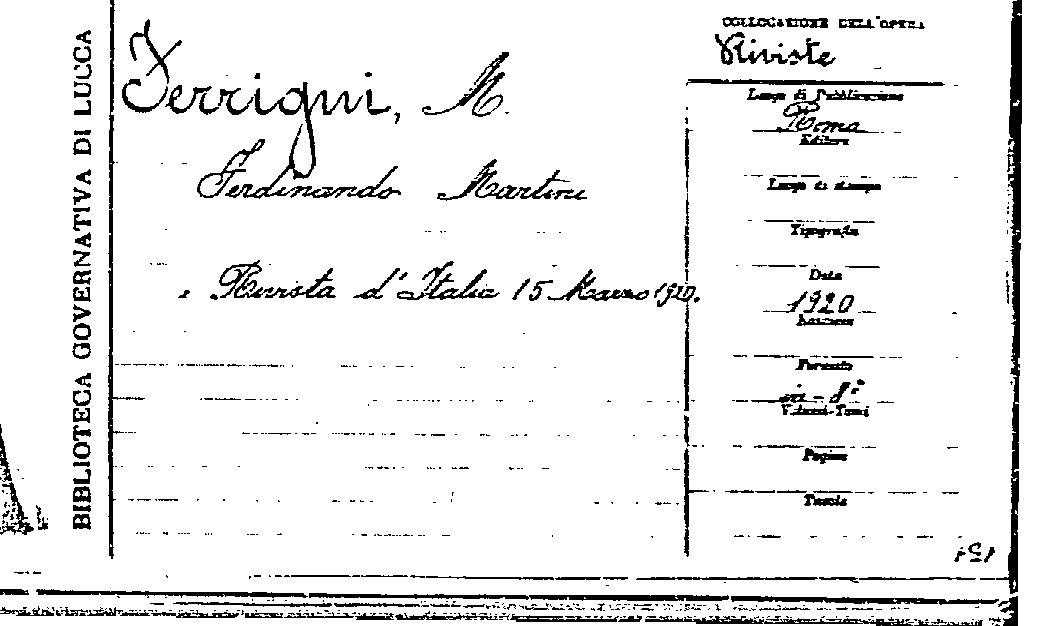 BIBLIOTECA GOVERNATIVA DI LUCCA
Ferrigni, M.
Ferdinando Martini
Rivista d'Italia 15 Marzo 1920.
COLLOCAZIONE DELL'OPERA
Riviste
Luogo di Pubblicazione
Roma
Editore
Luogo di stampa
Tipografia
Data
1920
Edizione
Formato
in-8°
Volumi-Tomi
Pagine
Tavole